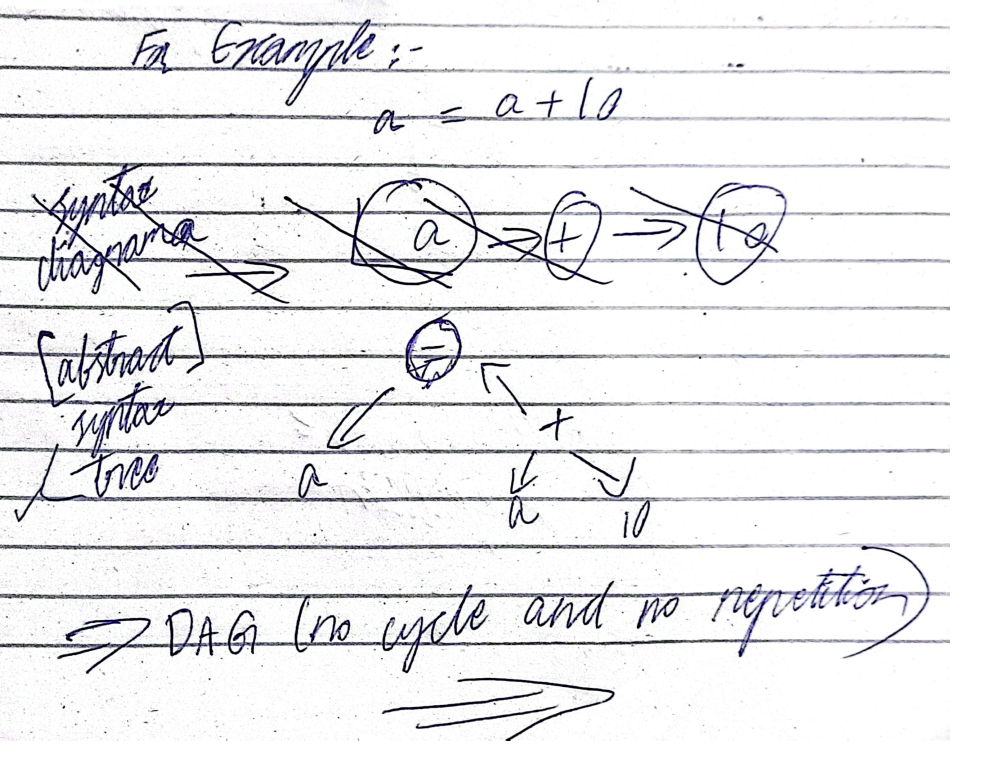 For Example :-
a = a + 10
syntax
diagrama
a + 10
[abstract]
syntax
tree
=
+
a
a 10
⇒ DAG (no cycle and no repetition)